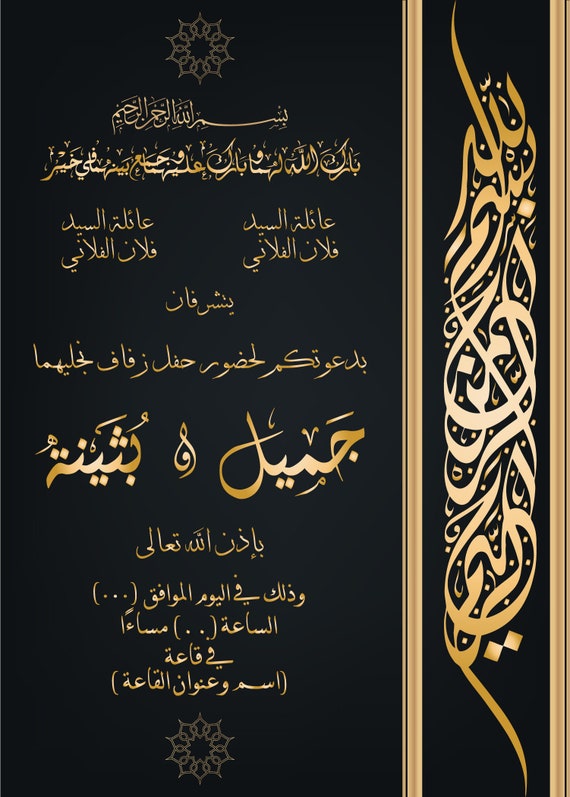 بسم الله الرحمن الرحيم
بارك الله لهما وبارك عليهما وجمع بينهما في خير
عائلة السيد
فلان الفلاني
عائلة السيد
فلان الفلاني
يتشرفان
بدعوتكم لحضور حفل زفاف نجليهما
جَميل و بُثَينة
بإذن الله تعالى
وذلك في اليوم الموافق (...)
الساعة (..) مساءًا
في قاعة
(اسم وعنوان القاعة)
بسم الله الرحمن الرحيم